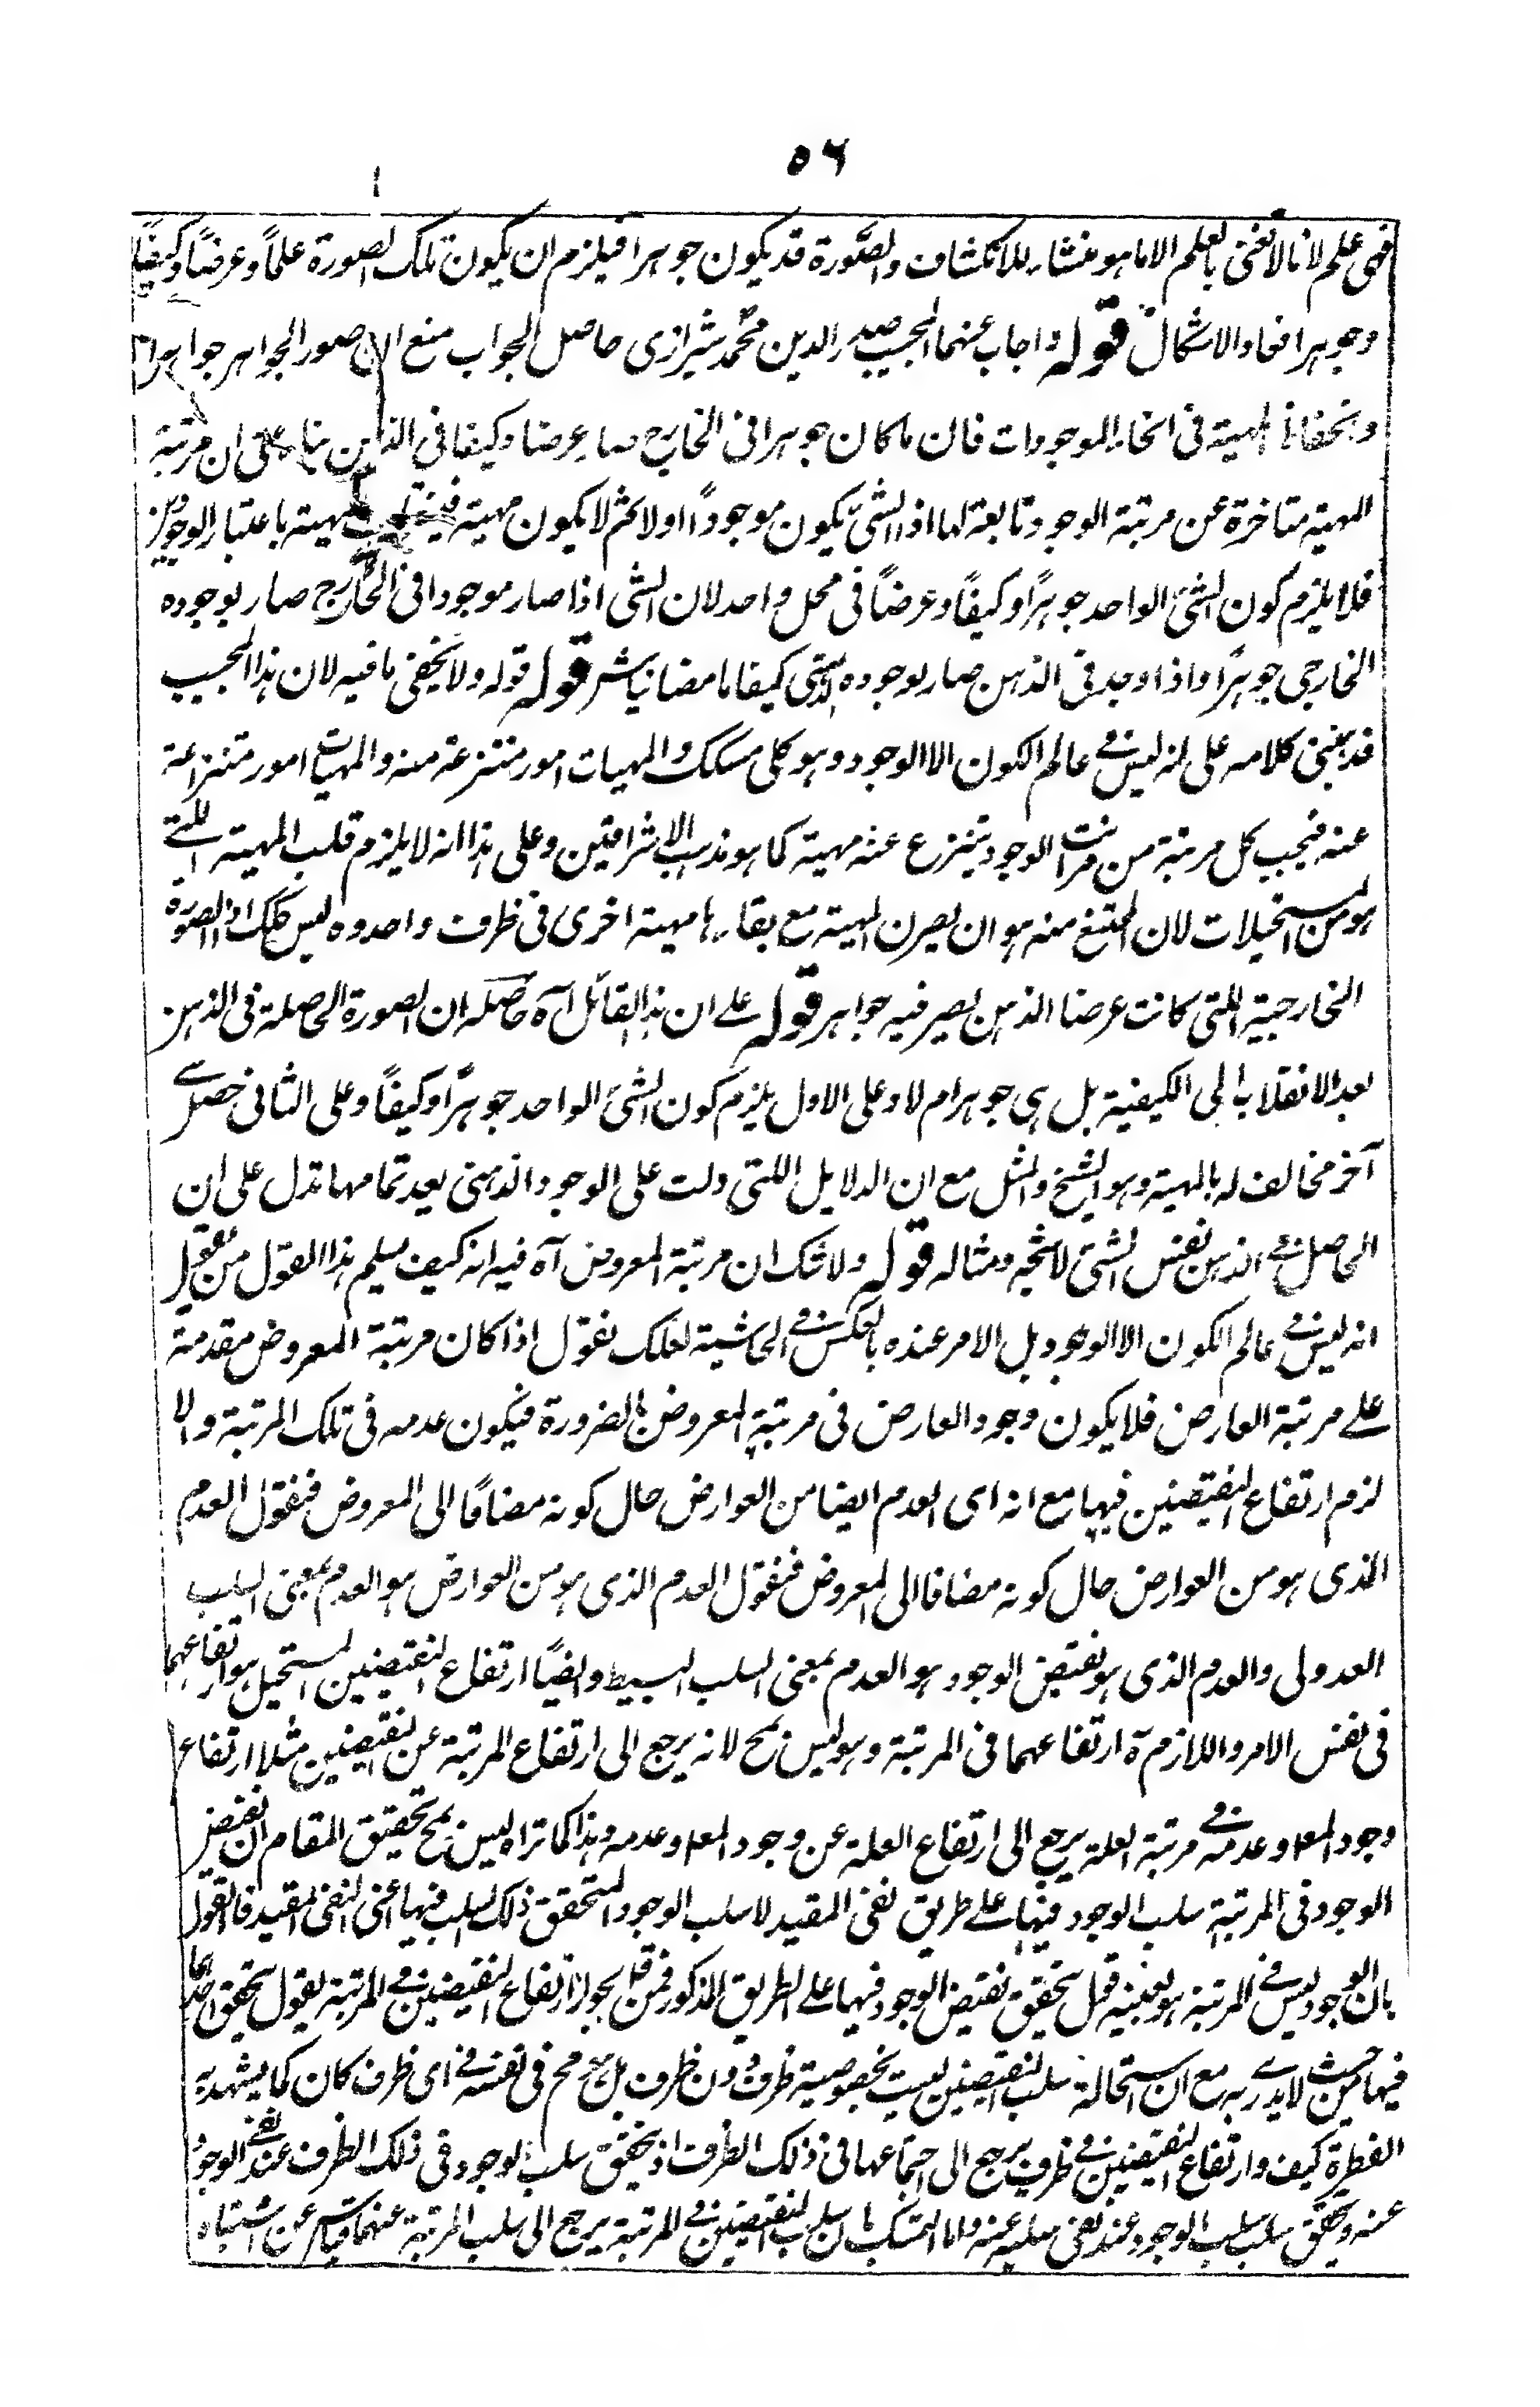 ٥٦
فهى علم لانا لا نعنى بالعلم الا ما هو منشاء للانكشاف والصّورة قد يكون جوهرا فيلزم ان يكون تلك الصورة علماً وعرضاً وكيفاً
وجوهرا فعاد الاشكال قوله واجاب عنهما المجيب صدر الدين محمّد شيرازى حاصل الجواب منع ان صور الجواهر جواهر
وانحفاظ المهية فى انحاء الموجودات فان ما كان جوهرا فى الخارج صار عرضا وكيفا فى الذهن بناء على ان مرتبة
المهية متاخرة عن مرتبة الوجود تابعة لها اذ الشئ يكون موجوداً اولا ثم لا يكون مهية المهية باعتبار الوجودين
فلا يلزم كون الشئ الواحد جوهراً وكيفاً وعرضاً فى محل واحد لان الشى اذا صار موجودا فى الخارج صار بوجوده
الخارجى جوهراً واذا وجد فى الذهن صار بوجوده الذهنى كيفا ما مضائباً قوله قوله ولا يخفى ما فيه لان هذا المجيب
قد بنى كلامه على انه ليس فى عالم الكون الا الوجود وهو كلى مسكك والمهيات امور منتزعة منه والمهيات امور متنزاعة
عنه فبحسب كل مرتبة من مراتب الوجود ينتزع عنه مهية كما هو مذهب الاشراقيين وعلى هذا انه لا يلزم قلب المهية اللتے
هو من المستحيلات لان الممتنع منه هو ان يصرن المهية مع بقاء ها مهية اخرى فى ظرف واحد وه ليس كك اذ الصورة
الخارجية اللتى كانت عرضا الذهن يصير فيه جواهر قوله على ان هذا القائل آه حاصله ان الصورة الحاصلة فى الذهن
بعد الانقلاب الى الكيفية بل هى جوهر ام لا وعلى الاول يلزم كون الشئ الواحد جوهراً وكيفاً وعلى الثانى حصل
آخر مخالف له بالمهية وهو الشبح والمثل مع ان الدلايل اللتى دلت على الوجود الذهنى بعد تمامها تدل على ان
الحاصل فى الذهن نفس الشئ لا شبحه ومثاله قوله ولا شك ان مرتبة المعروض آه فيه انه كيف يسلم هذا القول من يقول
انه ليس فى عالم الكون الا الوجود بل الامر عنده بالعكس فى الحاشية لعلك نقول اذا كان مرتبة المعروض مقدمة
على مرتبة العارض فلا يكون وجود العارض فى مرتبة المعروض بالضرورة فيكون عدمه فى تلك المرتبة والا
لزم ارتفاع النقيضين فيها مع انه اى العدم ايضا من العوارض حال كونه مضافاً الى المعروض فنقول العدم
الذى هو من العوارض حال كونه مضافا الى المعروض فنقول العدم الذى هو من العوارض هو العدم بمعنى السلب
العدولى والعدم الذى هو نقيض الوجود هو العدم بمعنى السلب البسيط وايضاً ارتفاع النقيضين المستحيل هو ارتفاعهما
فى نفس الامر واللازم ة ارتفاعهما فى المرتبة وهو ليس بمح لانه يرجع الى ارتفاع المرتبة عن النقيضين مثلا ارتفاع
وجود المعلا وعدمه فى مرتبة العلة يرجع الى ارتفاع العلة عن وجود المعلا وعدمه وهذا كما تراه ليس بمح تحقيق المقام ان نقيض
الوجود فى المرتبة سلب الوجود فيها على طريق نفى المقيد لا سلب الوجود المتحقق ذلك السلب فيها اعنى النفى المقيد فالقول
بان الوجود ليس فى المرتبة هو بعينه قول بتحقق نقيض الوجود فيها على الطريق المذكور فمن قال بجواز ارتفاع النقيضين فى المرتبة يقول بتحقق احدهما
فيها من حيث لا يدرے به مع ان استحالة سلب النقيضين ليست بخصوصية ظرف دون ظرف بل هو مح فى نفسه فى اى ظرف كان كما يشهد به
الفطرة كيف وارتفاع النقيضين فى ظرف يرجع الى اجتماعهما فى ذلك الظرف اذ يتحقق سلب الوجود فى ذلك الظرف عند نفى الوجود
عنه ويتحقق سلب سلب الوجود عند نفى سلبه عنه واما التمسك بان سلب النقيضين فى المرتبة يرجع الى سلب المرتبة عنهما فناش عن اشتباه